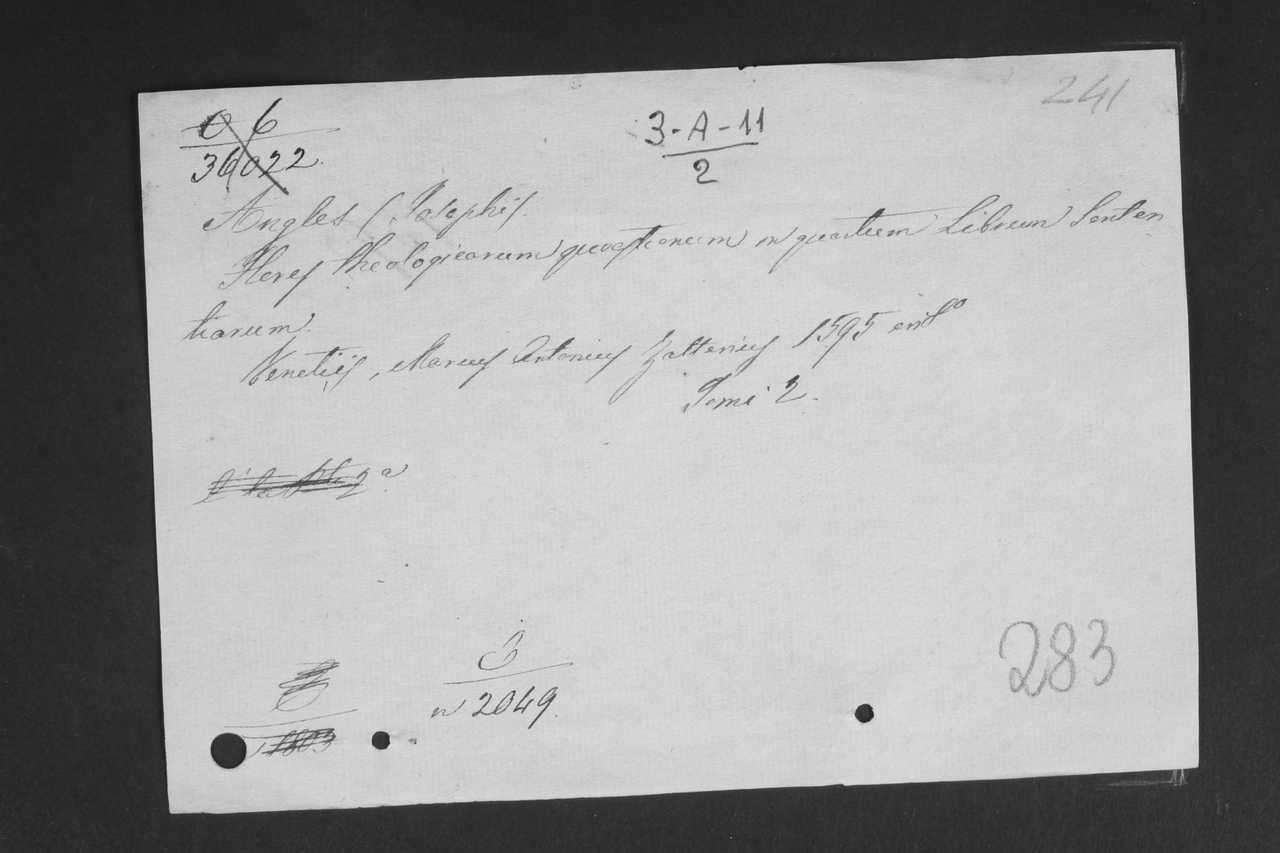 241
O 6
36022.
3-A-11
2
Angles (Josephi).
Flores theologicarum quaestionum in quartum Librum Senten
tiarum.
Venetiis, Marcus Antonius Zalterius 1595 en
Tomi 2.
2ª
n 2049.
283
1803